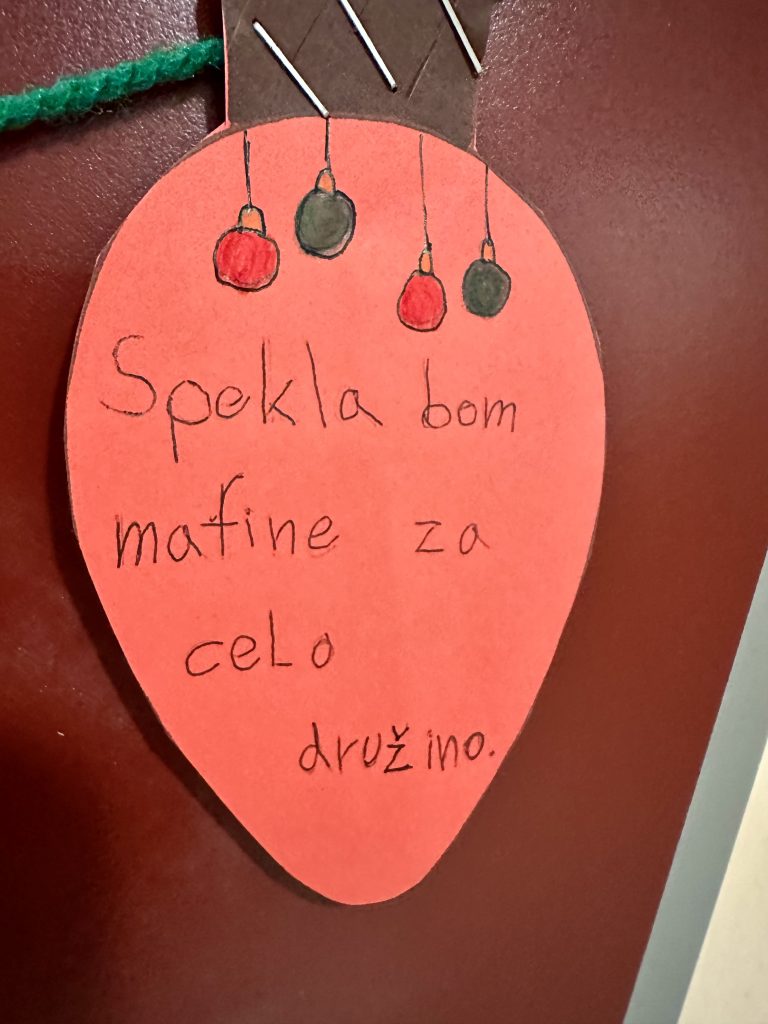 Spekla bom
mafine za
celo
družino.